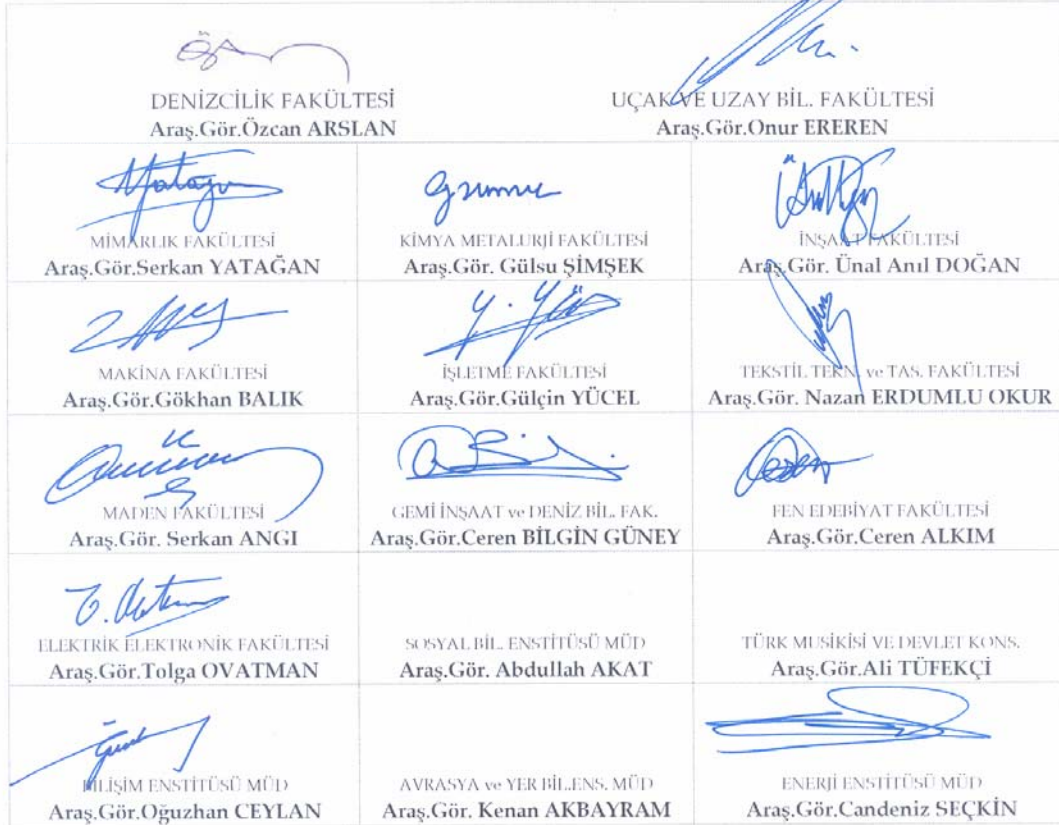 DENİZCİLİK FAKÜLTESİ
Araş.Gör.Özcan ARSLAN
UÇAK VE UZAY BİL. FAKÜLTESİ
Araş.Gör.Onur EREREN
MİMARLIK FAKÜLTESİ
Araş.Gör.Serkan YATAĞAN
KİMYA METALURJİ FAKÜLTESİ
Araş.Gör. Gülsu ŞİMŞEK
İNŞAAT FAKÜLTESİ
Araş.Gör. Ünal Anıl DOĞAN
MAKİNA FAKÜLTESİ
Araş.Gör.Gökhan BALIK
İŞLETME FAKÜLTESİ
Araş.Gör.Gülçin YÜCEL
TEKSTİL TEKN. ve TAS. FAKÜLTESİ
Araş.Gör. Nazan ERDUMLU OKUR
MADEN FAKÜLTESİ
Araş.Gör. Serkan ANGI
GEMİ İNŞAAT ve DENİZ BİL. FAK.
Araş.Gör.Ceren BİLGİN GÜNEY
FEN EDEBİYAT FAKÜLTESİ
Araş.Gör.Ceren ALKIM
ELEKTRİK ELEKTRONİK FAKÜLTESİ
Araş.Gör.Tolga OVATMAN
SOSYAL BİL. ENSTİTÜSÜ MÜD
Araş.Gör. Abdullah AKAT
TÜRK MUSİKİSİ VE DEVLET KONS.
Araş.Gör.Ali TÜFEKÇİ
BİLİŞİM ENSTİTÜSÜ MÜD
Araş.Gör.Oğuzhan CEYLAN
AVRASYA ve YER BİL.ENS. MÜD
Araş.Gör. Kenan AKBAYRAM
ENERJİ ENSTİTÜSÜ MÜD
Araş.Gör.Candeniz SEÇKİN